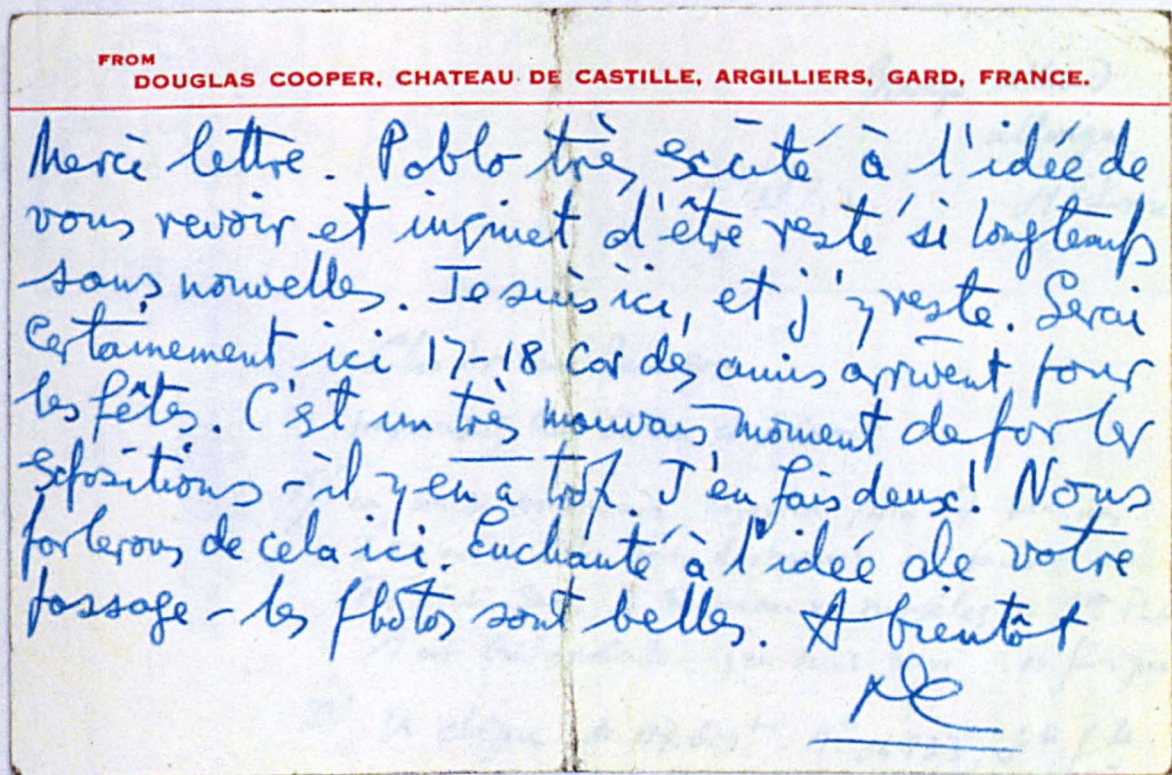 FROM
DOUGLAS COOPER, CHATEAU DE CASTILLE, ARGILLIERS, GARD, FRANCE.
Merci lettre. Pablo très excité à l'idée de
vous revoir et inquiet d'être resté si longtemps
sans nouvelles. Je suis ici, et j'y reste. Serai
certainement ici 17-18 car des amis arrivent pour
les fêtes. C'est un très mauvais moment de parler
expositions - il y en a trop. J'en fais deux! Nous
parlerons de cela ici. Enchanté à l'idée de votre
passage - les photos sont belles. A bientôt
DC